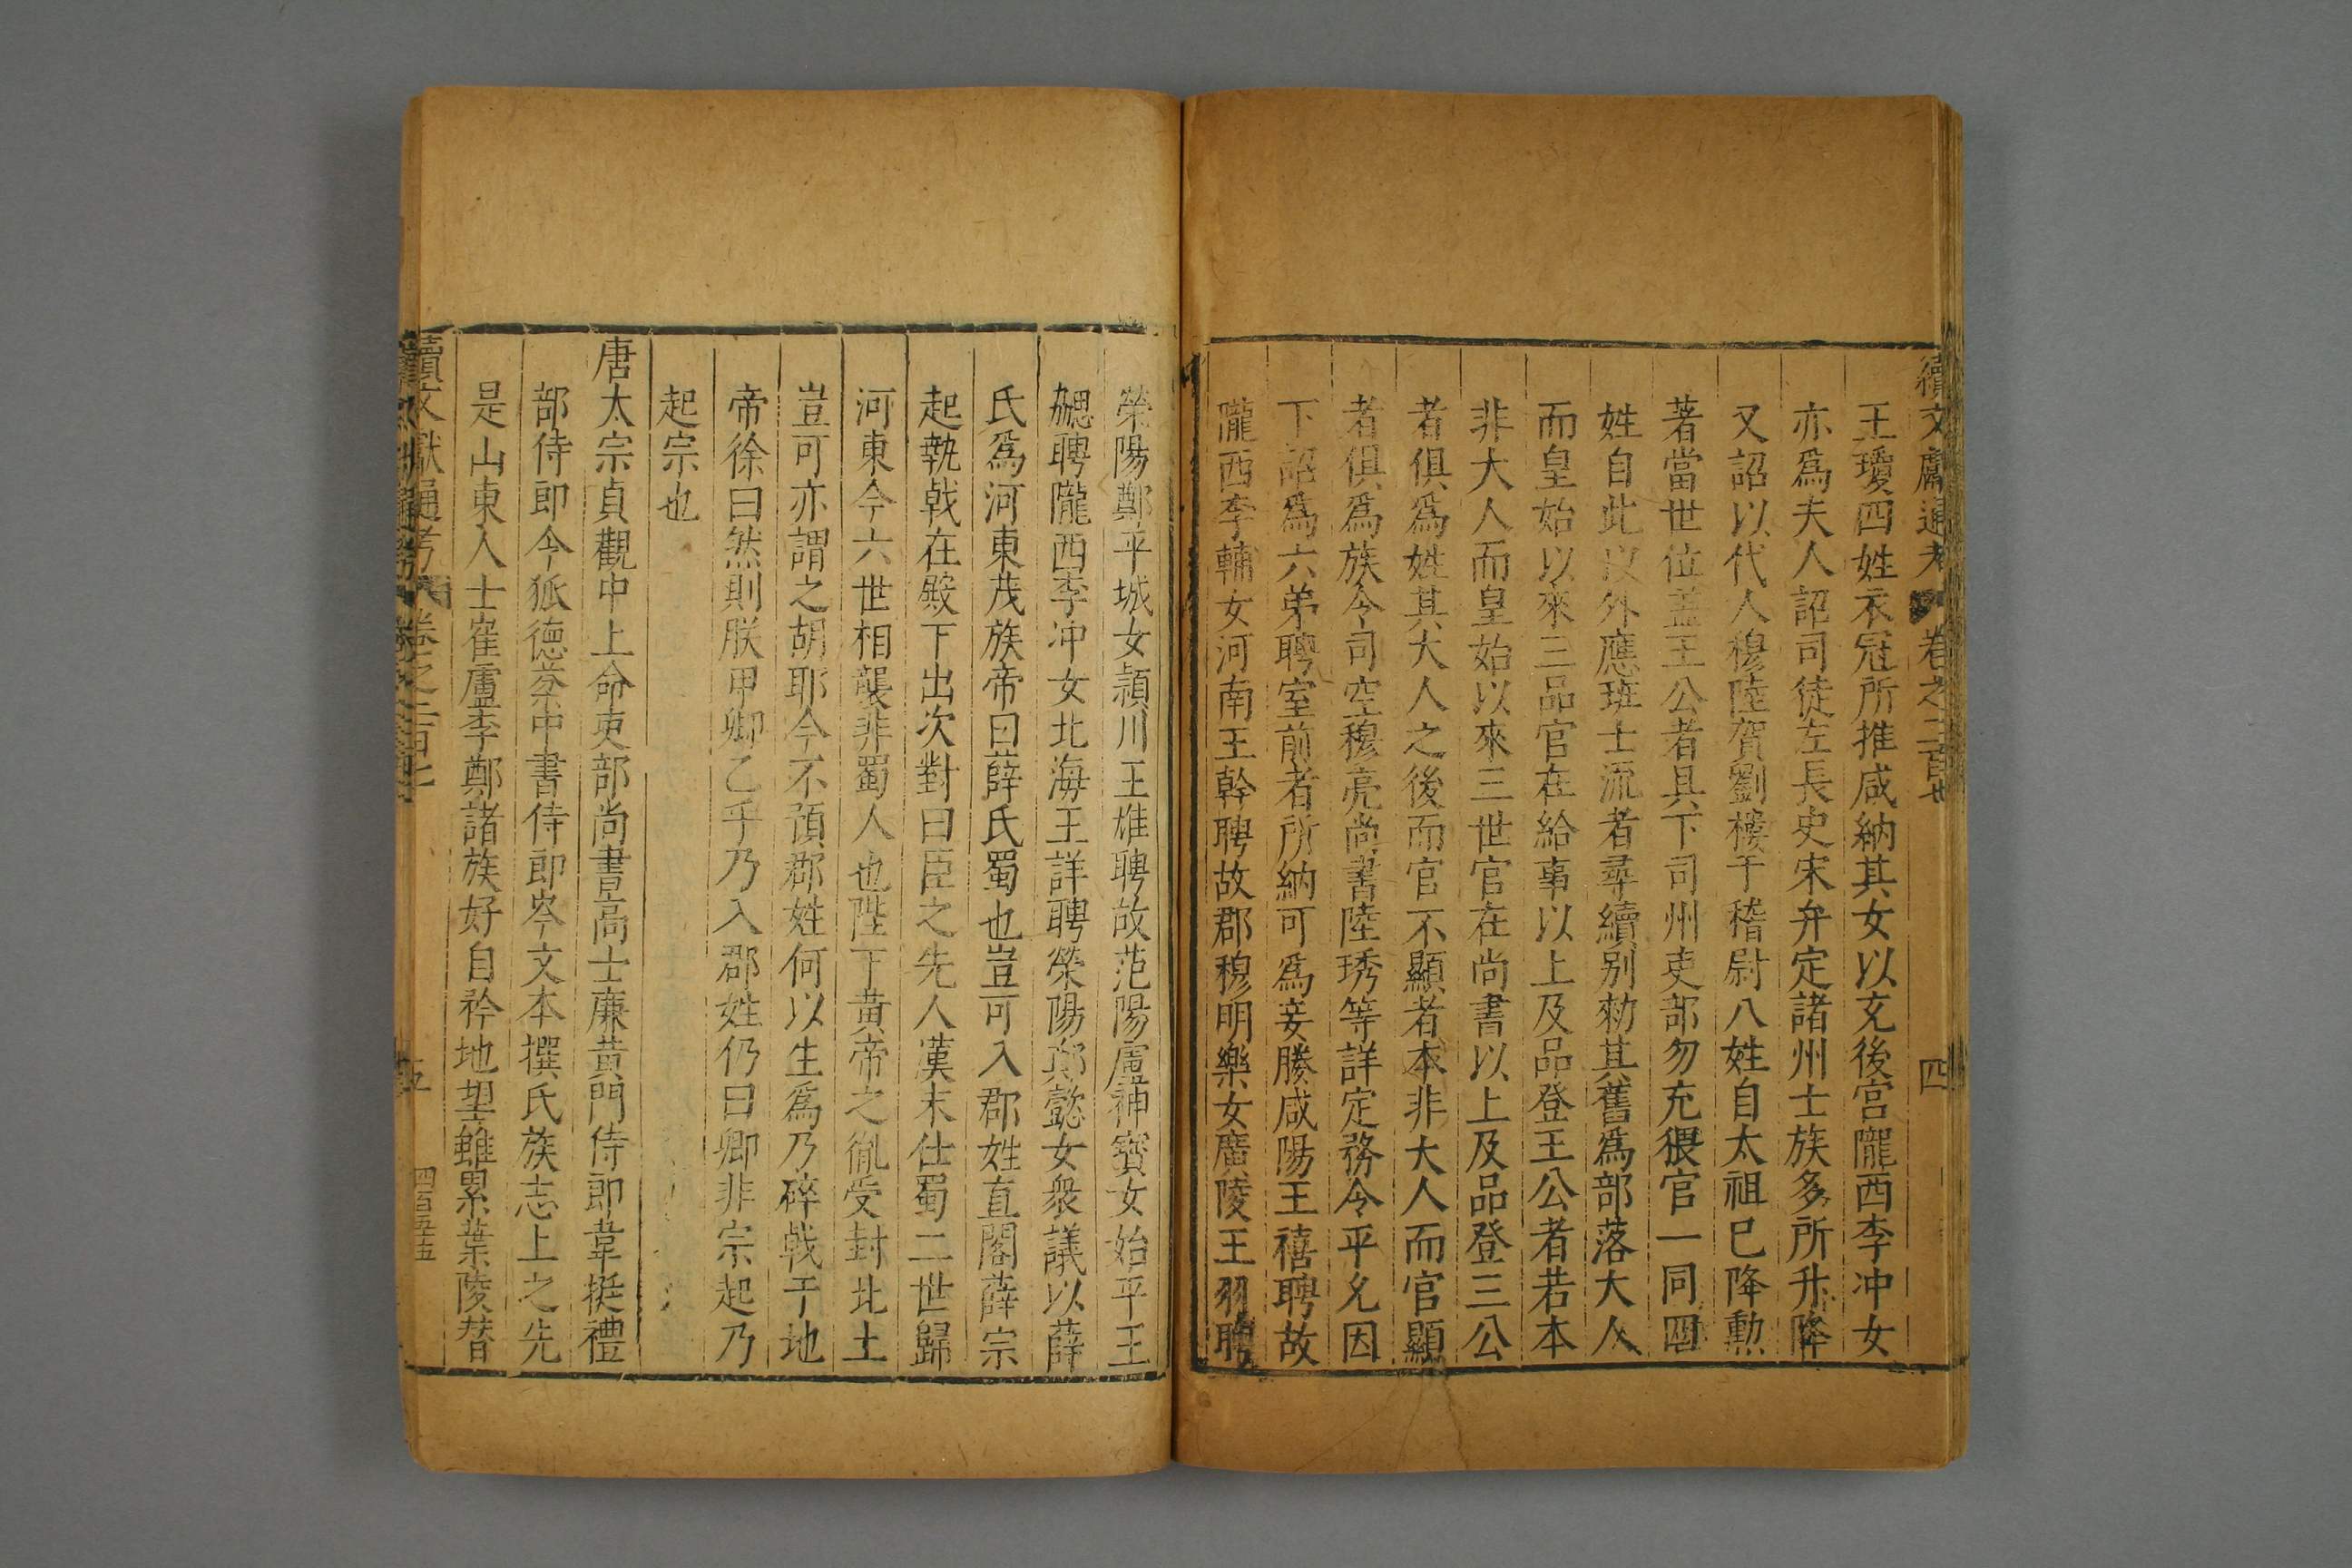 續文獻通考 卷之二百七 四
王瓊四姓衣冠所推咸納其女以充後宮隴西李冲女
亦爲夫人詔司徒左長史宋弁定諸州士族多所升降
又詔以代人穆陸賀劉樓于稽尉八姓自太祖巳降勲
著當世位盖王公者具下司州吏部勿充猥官一同四
姓自此以外應班士流者尋續别勑其舊爲部落大人
而皇始以來三品官在給事以上及品登王公者若本
非大人而皇始以來三世官在尚書以上及品登三公
者俱爲姓其大人之後而官不顯者本非大人而官顯
者俱爲族令司空穆亮尚書陸琇等詳定務令平允因
下詔爲六弟聘室前者所納可爲妾媵咸陽王禧聘故
隴西李輔女河南王幹聘故郡穆明樂女廣陵王羽聘
榮陽鄭平城女頴川王雄聘故范陽盧神寶女始平王
勰聘隴西李冲女北海王詳聘榮陽鄭懿女衆議以薛
氏爲河東茂族帝曰薛氏蜀也豈可入郡姓直閣薛宗
起執戟在殿下出次對曰臣之先人漢末仕蜀二世歸
河東今六世相襲非蜀人也陛下黃帝之胤受封北土
豈可亦謂之胡耶今不預郡姓何以生爲乃碎戟于地
帝徐曰然則朕甲卿乙乎乃入郡姓仍曰卿非宗起乃
起宗也
唐太宗貞觀中上命吏部尚書高士廉黃門侍郎韋挺禮
部侍郎令狐德棻中書侍郎岑文本撰氏族志上之先
是山東人士崔盧李鄭諸族好自矜地望雖累葉陵替
續文獻通考 卷之二百七 五 四百五十五